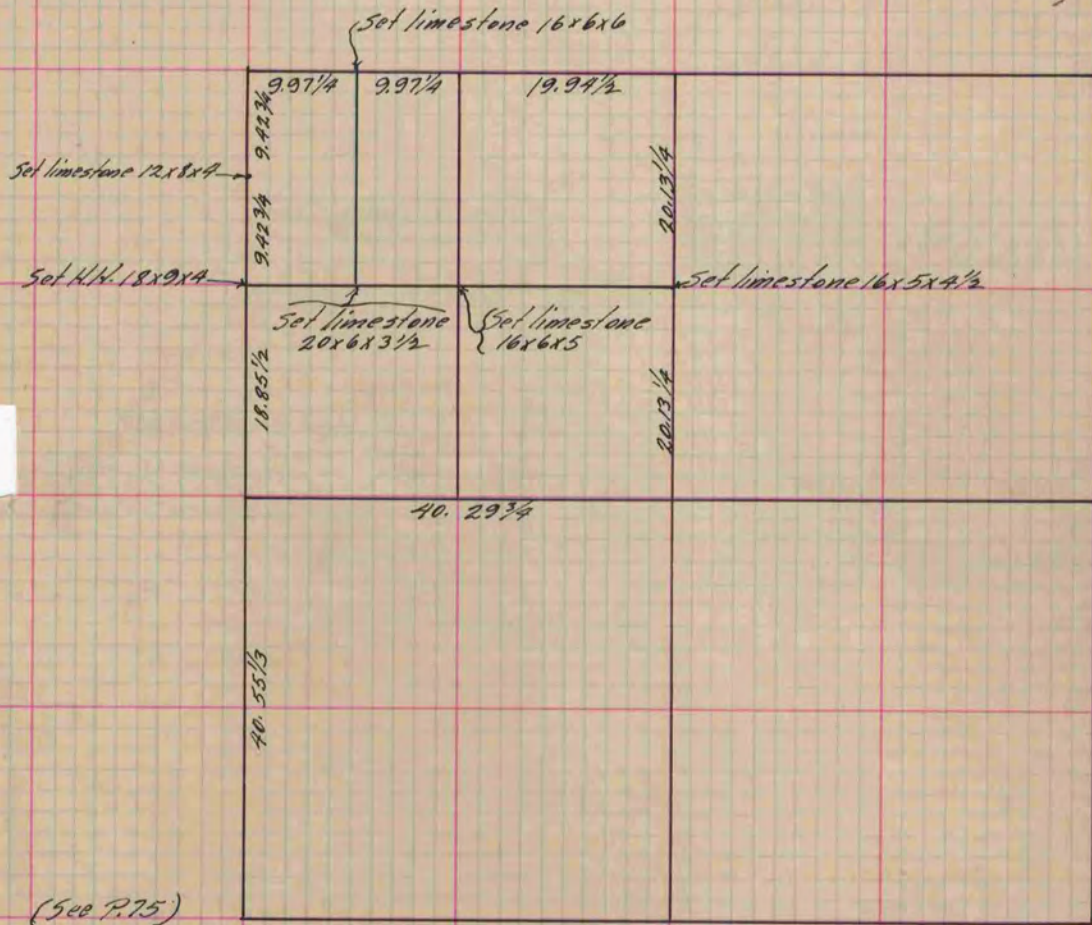 Set limestone 16x6x6
9.97 1/4
9.97 1/4
19.94 1/2
9.42 3/4
Set limestone 12x8x4
20.13 1/4
9.42 3/4
Set 18x9x4
Set limestone 16x5x4 1/2
Set limestone
20x6x3 1/2
Set limestone
16x6x5
18.85 1/2
20.13 1/4
40. 29 3/4
40. 55 1/3
(See P.75)